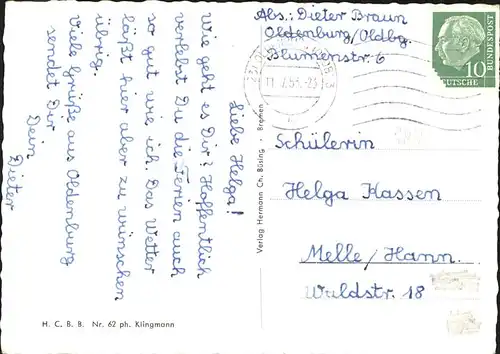 Liebe Helga!
Wie geht es Dir? Hoffentlich
verlebst Du die Ferien auch
so gut wie ich. Das Wetter
läßt hier aber zu wünschen
übrig.
Viele Grüße aus Oldenburg
sendet Dir
Dein
Dieter
H. C. B. B. Nr. 62 ph. Klingmann
Verlag Hermann Ch. Büsing · Bremen
Abs.: Dieter Braun
Oldenburg/Oldbg.
Blumenstr. 6
10
DEUTSCHE
BUNDESPOST
Schülerin
Helga Kassen
Melle/Hann.
Waldstr. 18